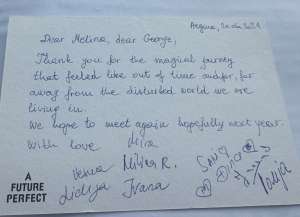 Dear Melina, dear George,
Thank you for the magical journey
that feeled like out of time and far, far
away from the disturbed world we are
living in.
We hope to meet again hopefully next year.
With love Mira
Milica R.
Lidija Ivana
A
FUTURE
PERFECT